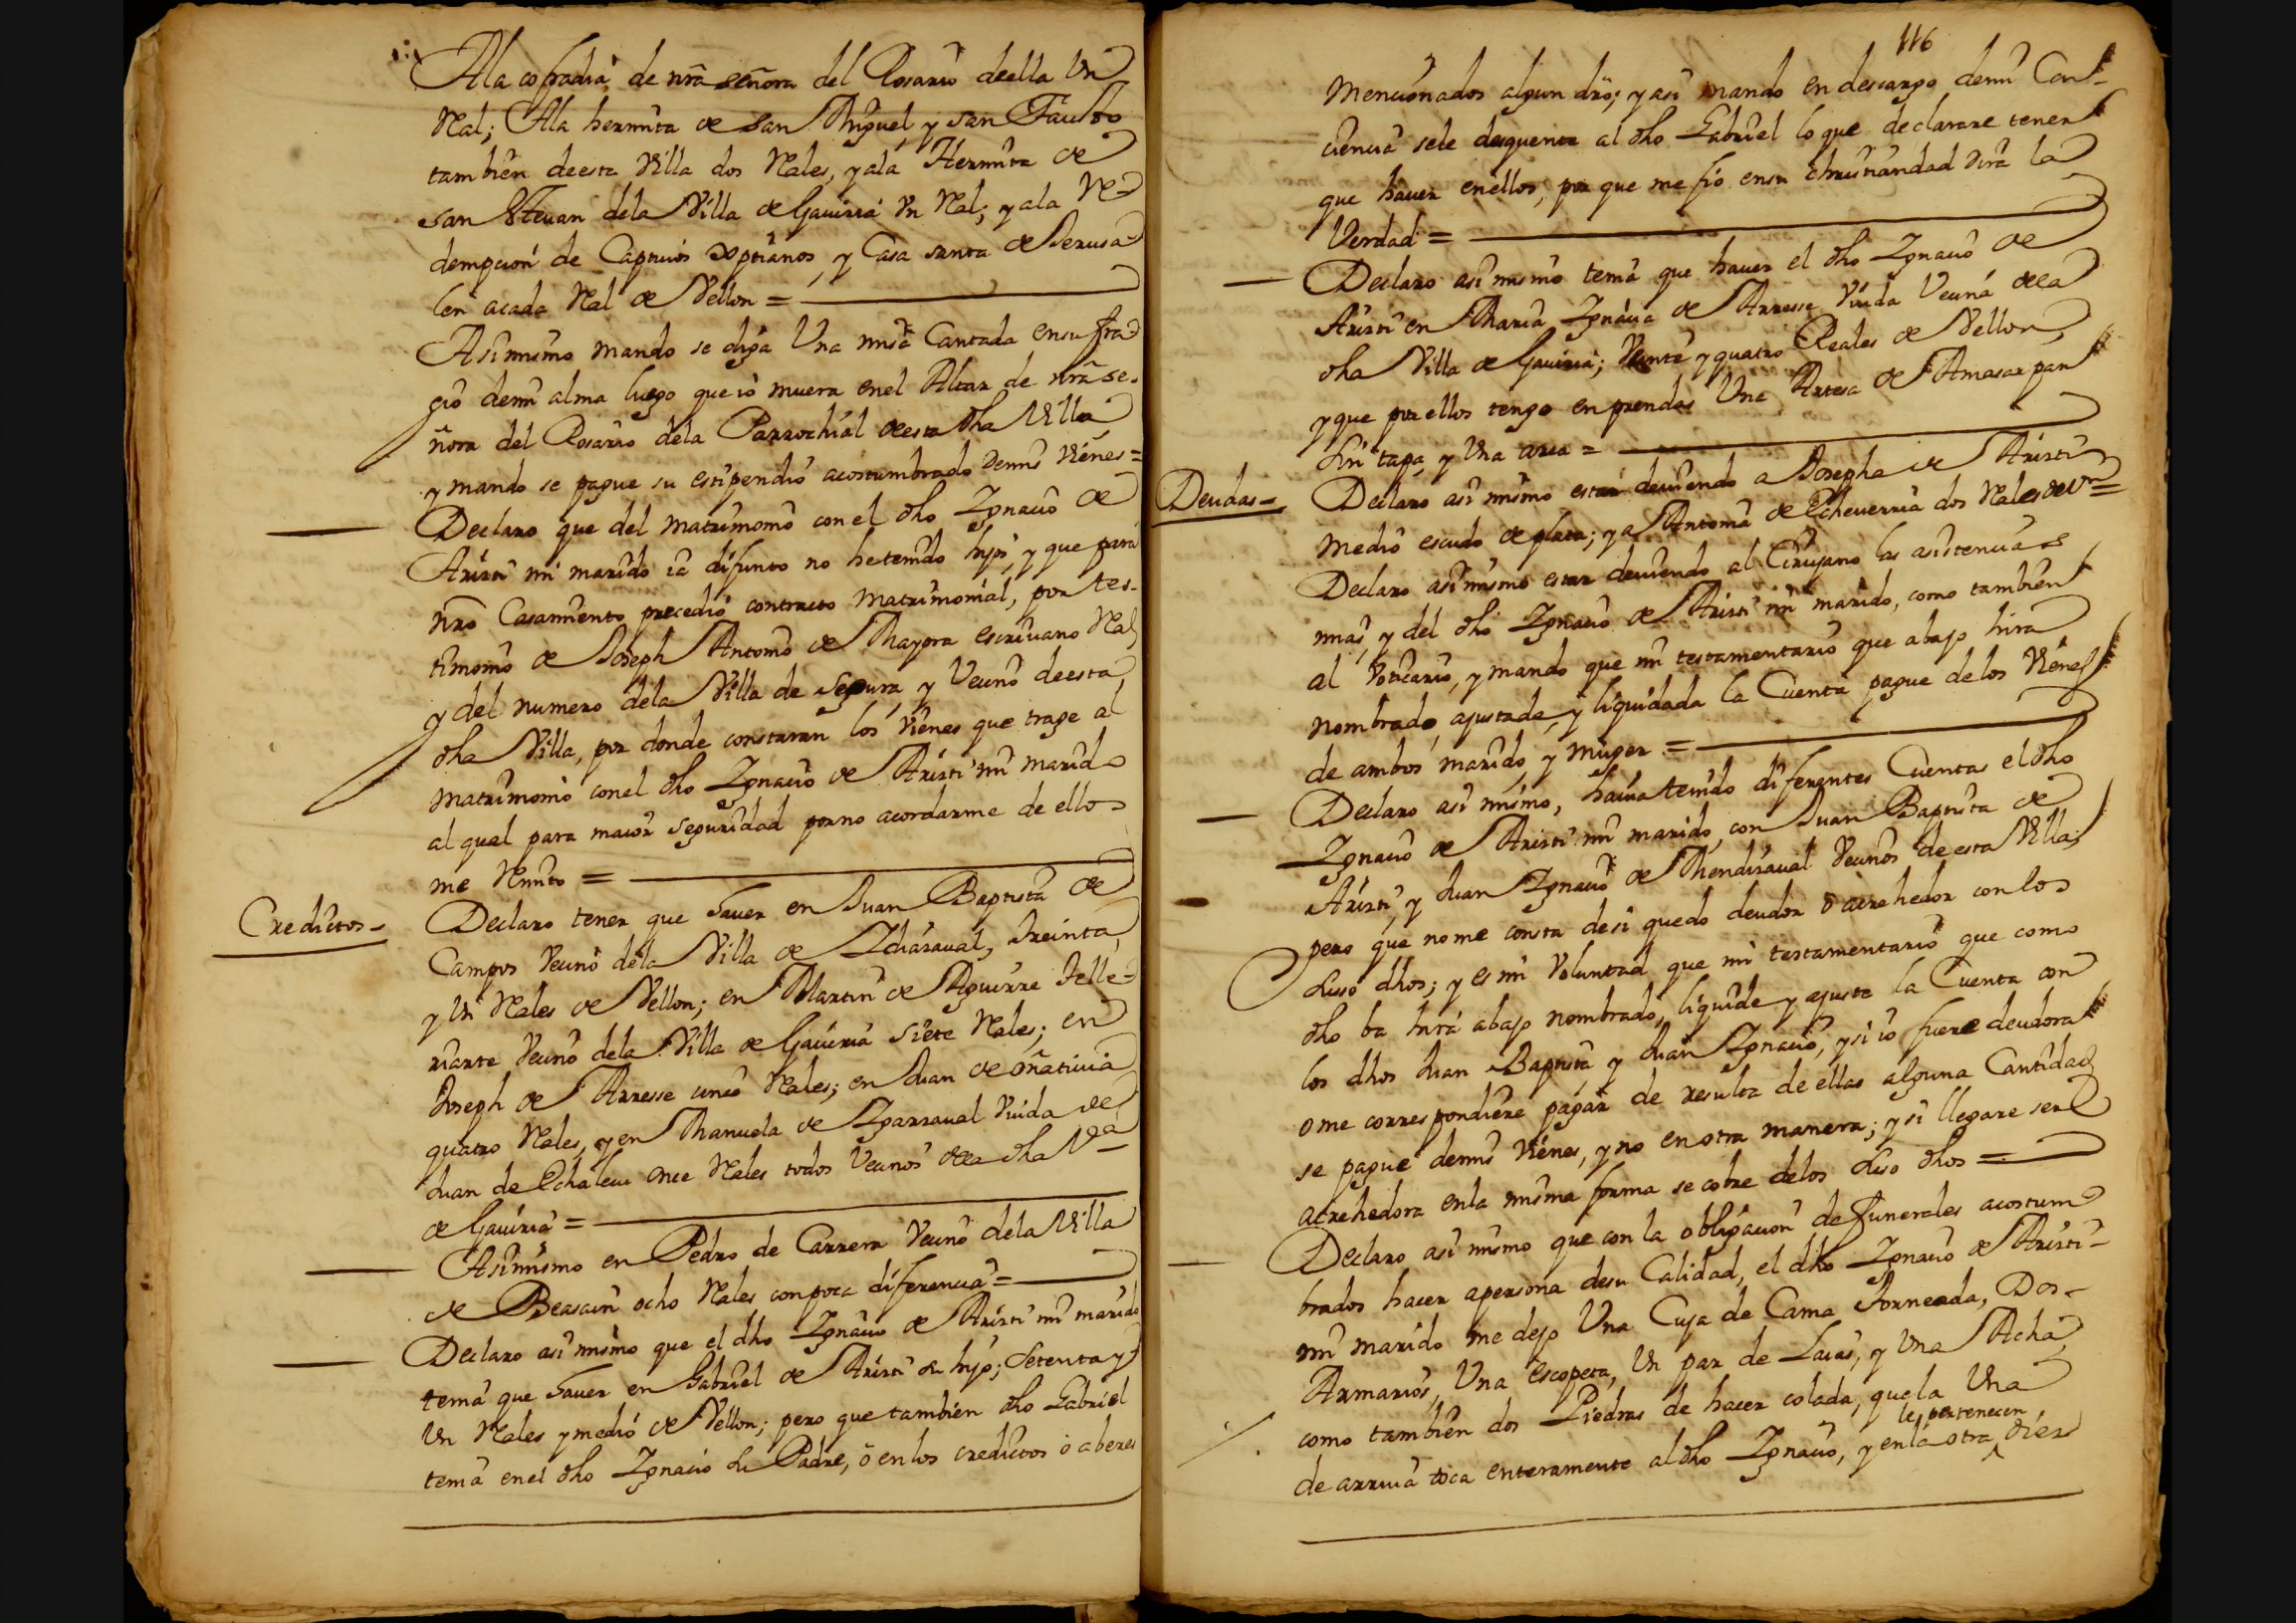 A la cofradia de nrã señora del Rosario deella Un
Real; A la hermita de san Miguel y san Fausto
tambien deesta Villa dos Reales, y ala Hermita de
san Stevan dela Villa de Gaviria Un Real; y ala Re=
dempcion de Captivos Xptianos, y Casa santa de Jerusa=
len acada Real de Vellon =
Asimismo mando se diga Una misa Cantada en sufra=
gio demi alma luego que io muera enel Altar de nrã se-
ñora del Rosario dela Parrochial deesta dha Villa
y mando se pague su estipendio acostumbrado demis Vienes=
Declaro que del matrimonio con el dho Ygnacio de
Aristi mi marido ia difunto no hetenido hijos, y que para
nro Casamiento precedio contracto matrimonial, por tes-
timonio de Joseph Antonio de Mayora escrivano Real
y del numero dela Villa de Segura, y Vecino deesta
dha Villa, por donde constaran los Vienes que trage al
matrimonio conel dho Ygnacio de Aristi mi marido
al qual para maior seguridad porno acordarme de ellos
me Remito =
Credictos= Declaro tener que haver en Juan Baptista de
Campos Vecino dela Villa de Ychasaval, treinta
y Un Reales de Vellon; en Martin de Aguirre Telle=
riarte Vecino dela Villa de Gaviria siete Reales; en
Joseph de Arrese cinco Reales; en Juan de oñativia
quatro Reales, y en Manuela de Ygarraval Viuda de
Juan de Echaleçu once Reales todos Vecinos dela dha Vª
de Gaviria =
Asimismo en Pedro de Carrera Vecino dela Villa
de Beasain ocho Reales conpoca diferencia =
Declaro asi mismo que el dho Ygnacio de Aristi mi marido
tenia que haver en Gabriel de Aristi su hijo; setenta y
Un Reales y medio de Vellon; pero que tambien dho Gabriel
tenia enel dho Ygnacio su Padre, ô en los credictos ô aberes
116
mencionados algun dro; y asi mando en descargo demi Con=
ciencia sele desquente al dho Gabriel lo que declarare tener
que haver enellos, por que me fio ensu christiandad dira la
Verdad =
Declaro asi mismo tenia que haver el dho Ygnacio de
Aristi en Maria Ygnacia de Arresse Viuda Vecina dela
dha Villa de Gaviria; Veinte y quatro Reales de Vellon,
y que por ellos tengo en prendas Una Artesa de Amasar pan
sin tapa, y Una arca =
Deudas= Declaro asi mismo estar deviendo a Josepha de Aristi
medio escudo de plata; y a Antonia de Echeverria dos Reales de Vn=
Declaro asimismo estar deviendo al Cirujano las asistencias
mias, y del dho Ygnacio de Aristi mi marido, como tambien
al Voticario, y mando que mi testamentario que abajo hira
nombrado, ajustada, y liquidada la Cuenta pague delos Vienes
de ambos marido, y muger =
Declaro asi mismo, havia tenido diferentes Cuentas el dho
Ygnacio de Aristi mi marido, con Juan Baptista de
Aristi, y Juan Ygnacio de Mendiraval Vecinos de esta Villa;
pero que nome consta desi quedo deudor ô acrehedor con los
suso dhos; y es mi Voluntad que mi testamentario que como
dho ba hira abajo nombrado, liquide y ajuste la Cuenta con
los dhos Juan Baptista y Juan Ygnacio, y si io fuere deudora
ome correspondiere pagar de resulta de ellas alguna Cantidad
se pague demis Vienes, y no en otra manera; y si llegare ser
acrehedora enla misma forma se cobre delos suso dhos =
Declaro asi mismo que con la obligacion de funerales acostum=
brados hacer apersona desu Calidad, el dho Ygnacio de Aristi=
mi marido me dejo Una Cuja de Cama torneada, Dos=
Armarios, Una escopeta, Un par de Laias, y Una Acha,
como tambien dos Piedras de hacer colada, que la Una
le pertenecen
de arriva toca enteramente al dho Ygnacio, y enla otra diez